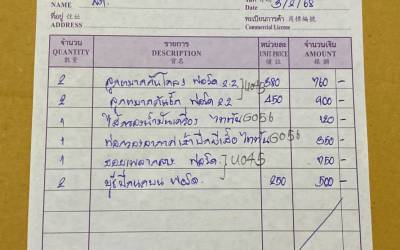 NAME นก.
วันที่ 3/2/68
Date
ที่อยู่ 住址
ADDRESS
ทะเบียนการค้า 商標編號
Commercial License
จำนวน รายการ หน่วยละ จำนวนเงิน
QUANTITY DESCRIPTION UNIT PRICE AMOUNT
數量 貨名 價註 銀額
2 ลูกหมากคันโคลง ฟอร์ด 2.2 U045 380 760 -
2 ลูกหมากคันชัก ฟอร์ด 2.2 450 900 -
1 ไส้กรองน้ำมันเครื่อง ไททัน G056 120 -
1 ท่อกรองอากาศเข้าปีกผีเสื้อ ไททัน G056 350 -
1 ยอยเพลากลาง ฟอร์ด. U045 750 -
2 บู๊ชปีกนกบน ฟอร์ด. 250 500 -